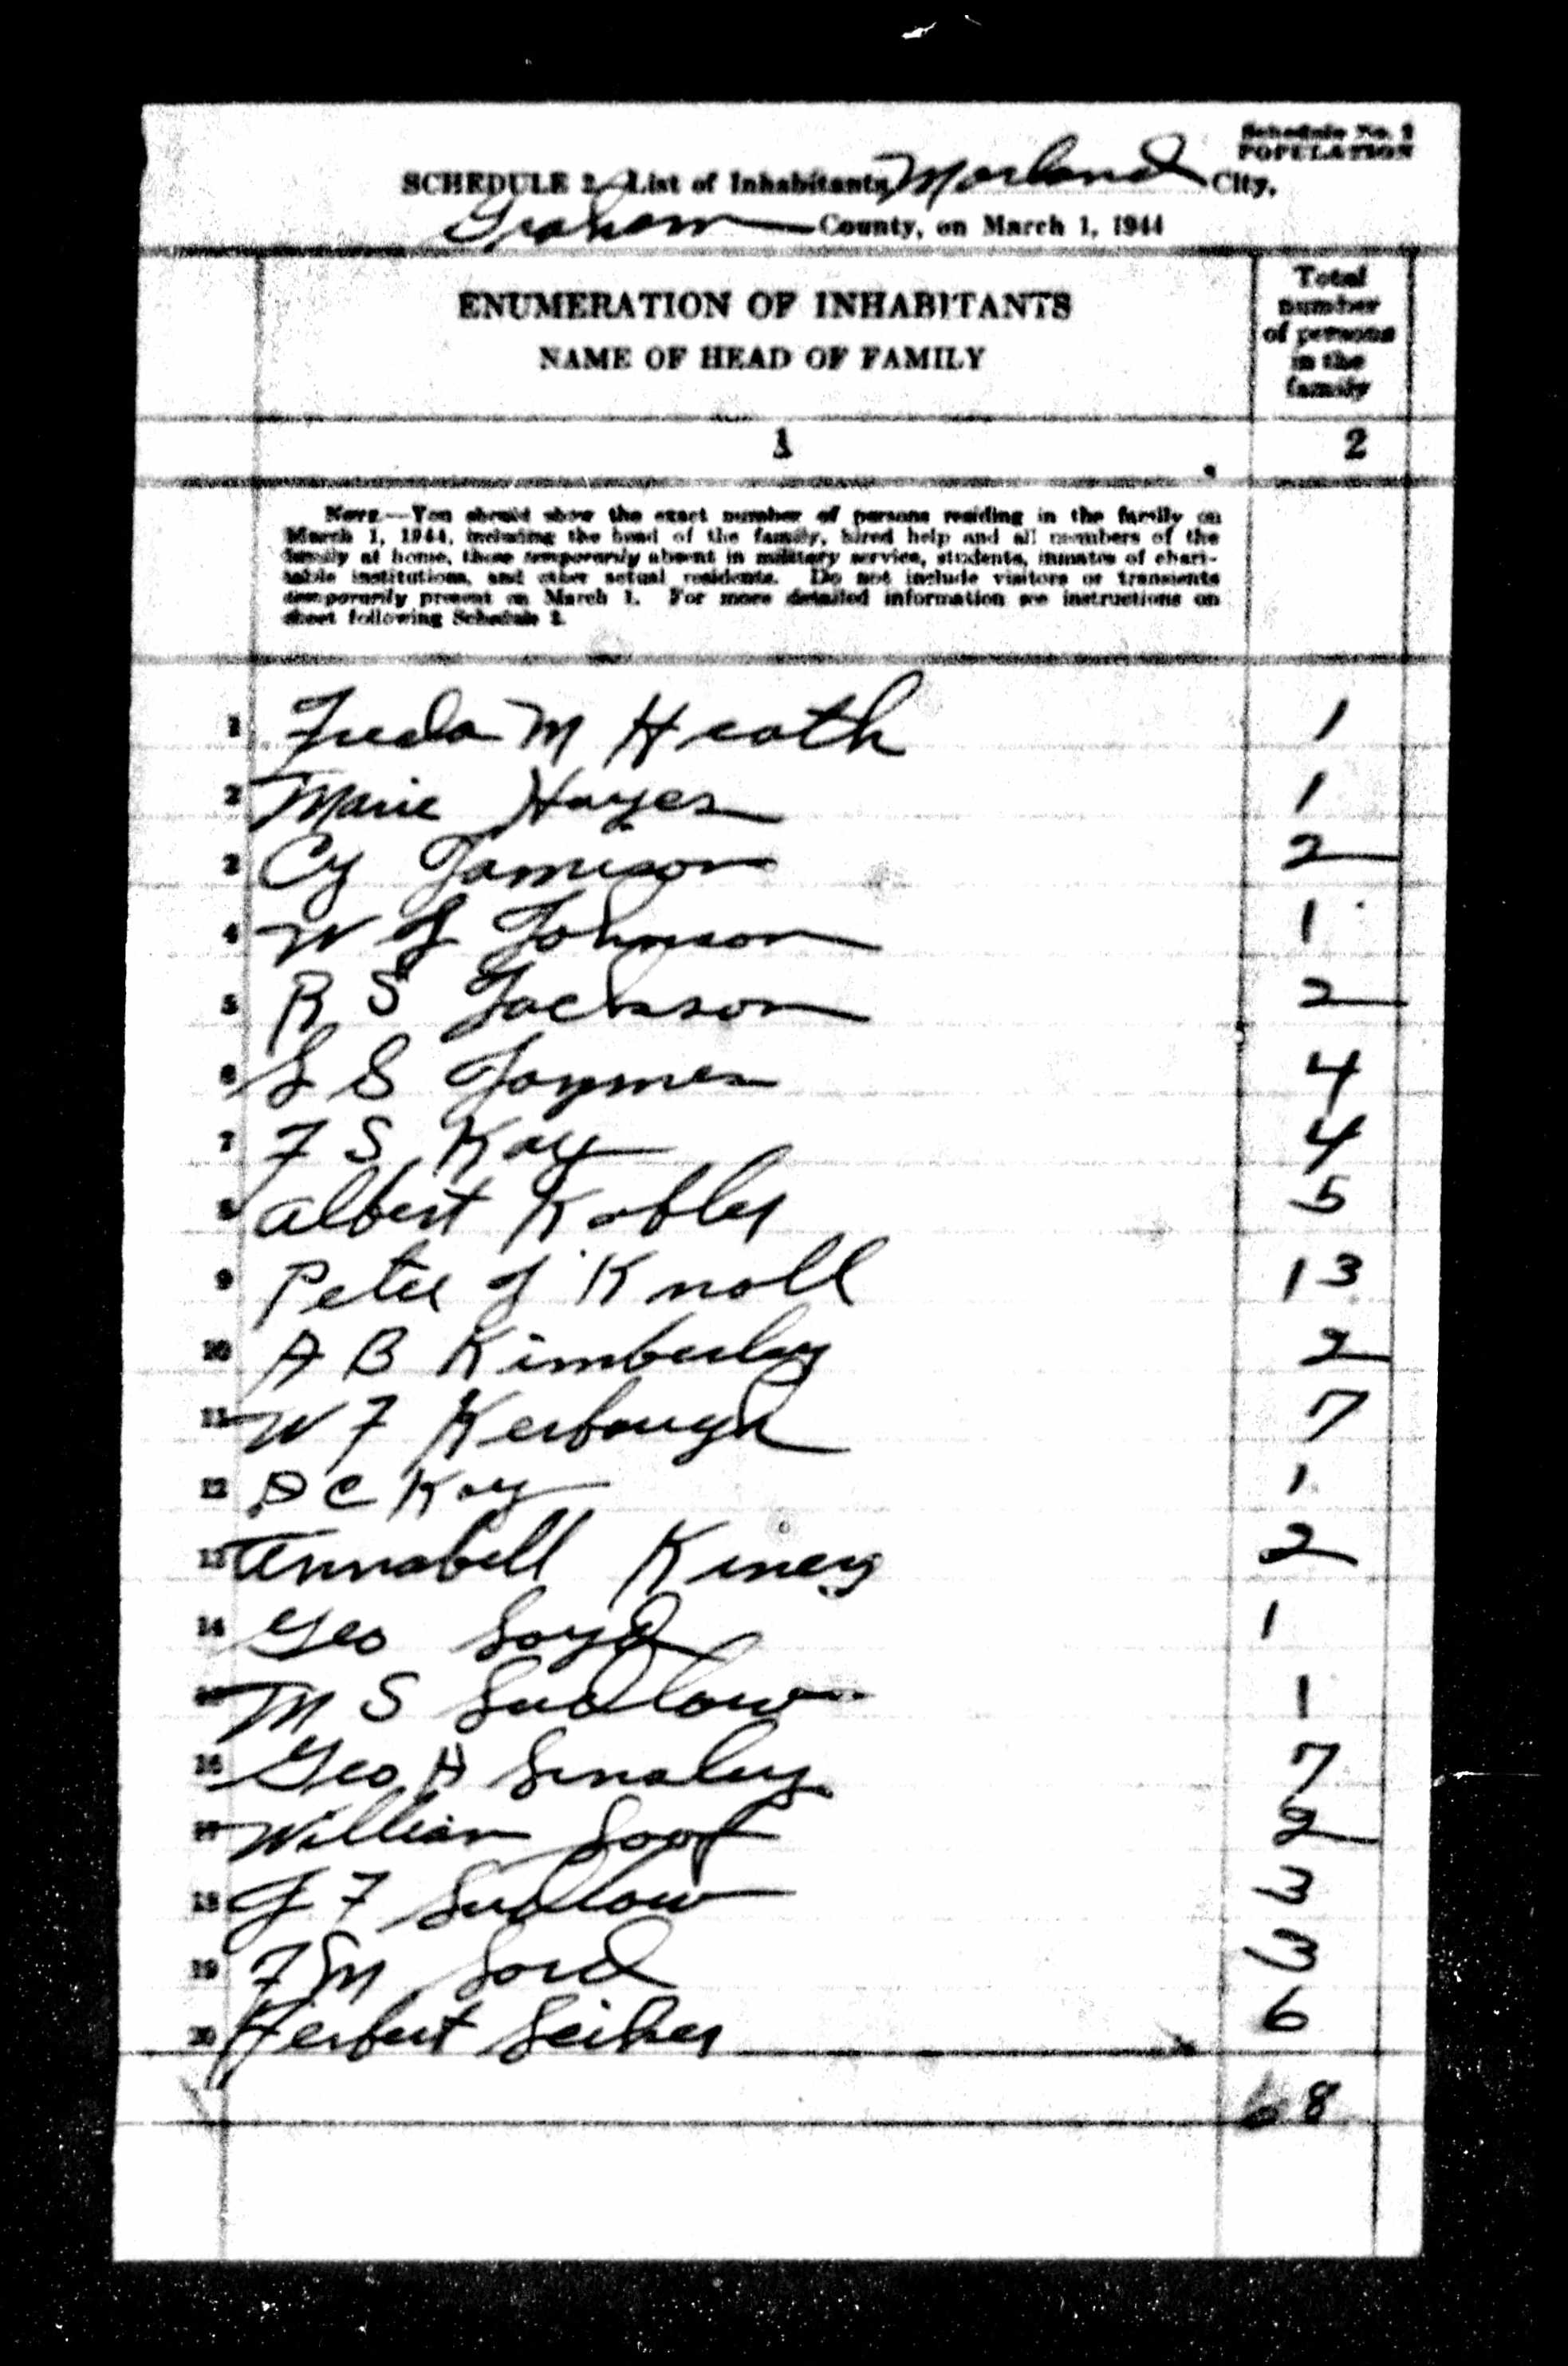 Schedule No. 2
POPULATION
SCHEDULE 2—List of Inhabitants, Morland City,
Graham County, on March 1, 1944
ENUMERATION OF INHABITANTS
NAME OF HEAD OF FAMILY
Total number of persons in the family
1 2
NOTE.—You should show the exact number of persons residing in the family on
March 1, 1944, including the head of the family, hired help and all members of the
family at home, those temporarily absent in military service, students, inmates of chari-
table institutions, and other actual residents. Do not include visitors or transients
temporarily present on March 1. For more detailed information see instructions on
sheet following Schedule 2.
1 Freda M Heath 1
2 Marie Hayes 1
3 Cy Jamison 2
4 W J Johnson 1
5 R S Jackson 2
6 L S Jaymes 4
7 F S Kay 4
8 Albert Kobler 5
9 Peter J Knoll 13
10 A B Kimberley 2
11 W F Kerbaugh 7
12 D C Kay 1
13 Annabell Kiney 2
14 Geo Loyd 1
15 M S Ludlow 1
16 Geo. H 7
17 William Loof 2
18 J F Ludlow 3
19 F M Lord 3
20 Herbert Leiker 6
68